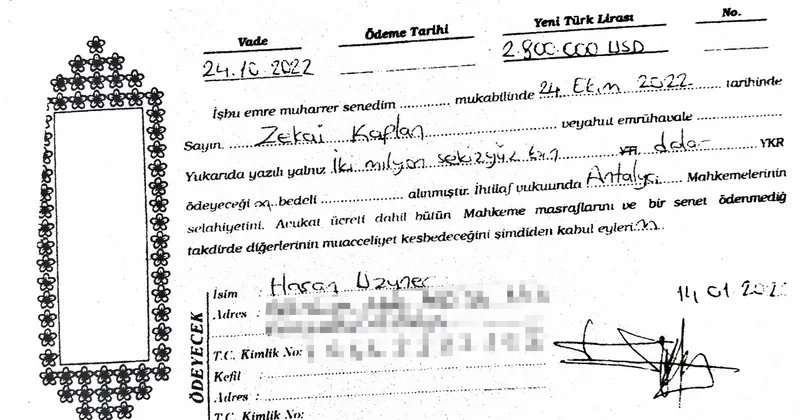 Vade Ödeme Tarihi Yeni Türk Lirası No.
24.10.2022 2.800.000 USD
İşbu emre muharrer senedim .......... mukabilinde 24 Ekim 2022 tarihinde
Sayın. Zekai Kaplan veyahut emrühavale
Yukarıda yazılı yalnız İki milyon sekizyüz bin dolar YKR
ödeyeceği bedeli .......... alınmıştır. İhtilaf vukuunda Antalya Mahkemelerinin
selahiyetini. Avukat ücreti dahil bütün Mahkeme masraflarını ve bir senet ödenmediğ
takdirde diğerlerinin muacceliyet kesbedeceğini şimdiden kabul eyleri
İsim : Hasan
Adres :
14 01 202
T.C. Kimlik No:
Kefil :
Adres :
T.C. Kimlik No:
ÖDEYECEK